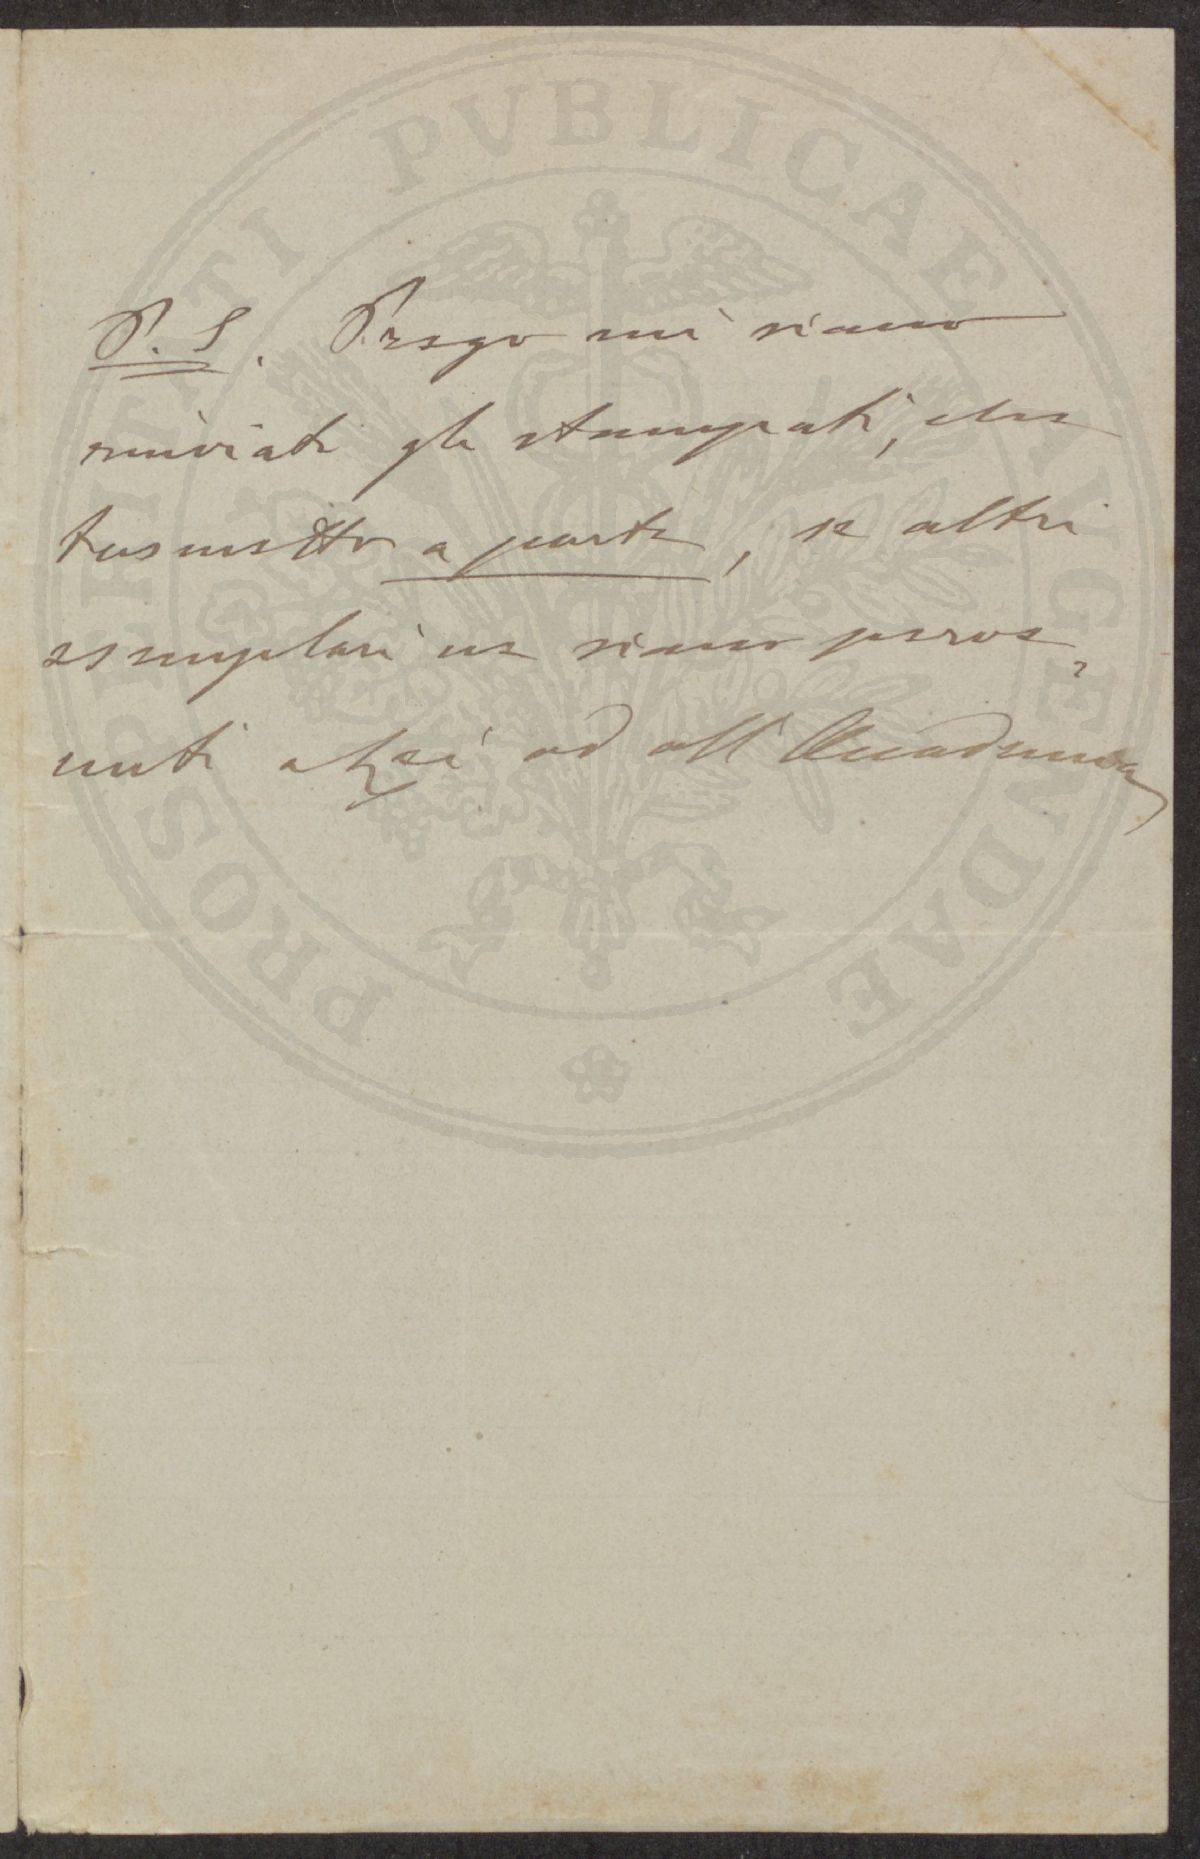 P. S. Prego mi siano
rinviati gli stampati, che
trasmetto a parte, se altri
esemplari ne siano perve-
nuti a Lei od all'Accademia
PROSPERITATI PVBLICAE AVGENDAE